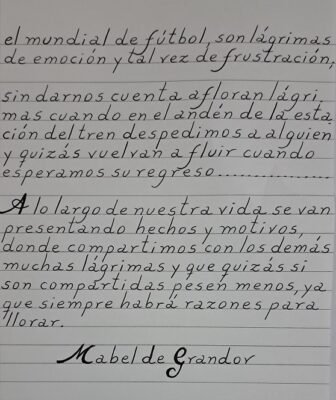 el mundial de fútbol, son lágrimas
de emoción y tal vez de frustración,
sin darnos cuenta afloran lágri_
mas cuando en el andén de la esta_
ción del tren despedimos a alguien
y quizás vuelvan a fluir cuando
esperamos su regreso...............
A lo largo de nuestra vida se van
presentando hechos y motivos,
donde compartimos con los demás
muchas lágrimas y que quizás si
son compartidas pesen menos, ya
que siempre habrá razones para
llorar.
Mabel de Grandov